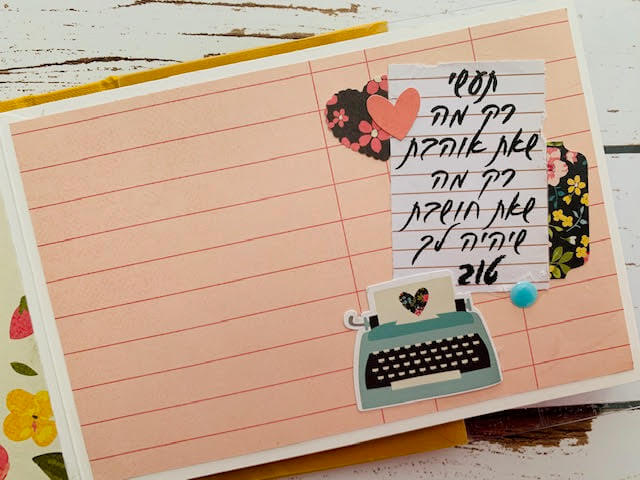 תעשי
רק מה
שאת אוהבת
רק מה
שאת חושבת
שיהיה לך
טוב